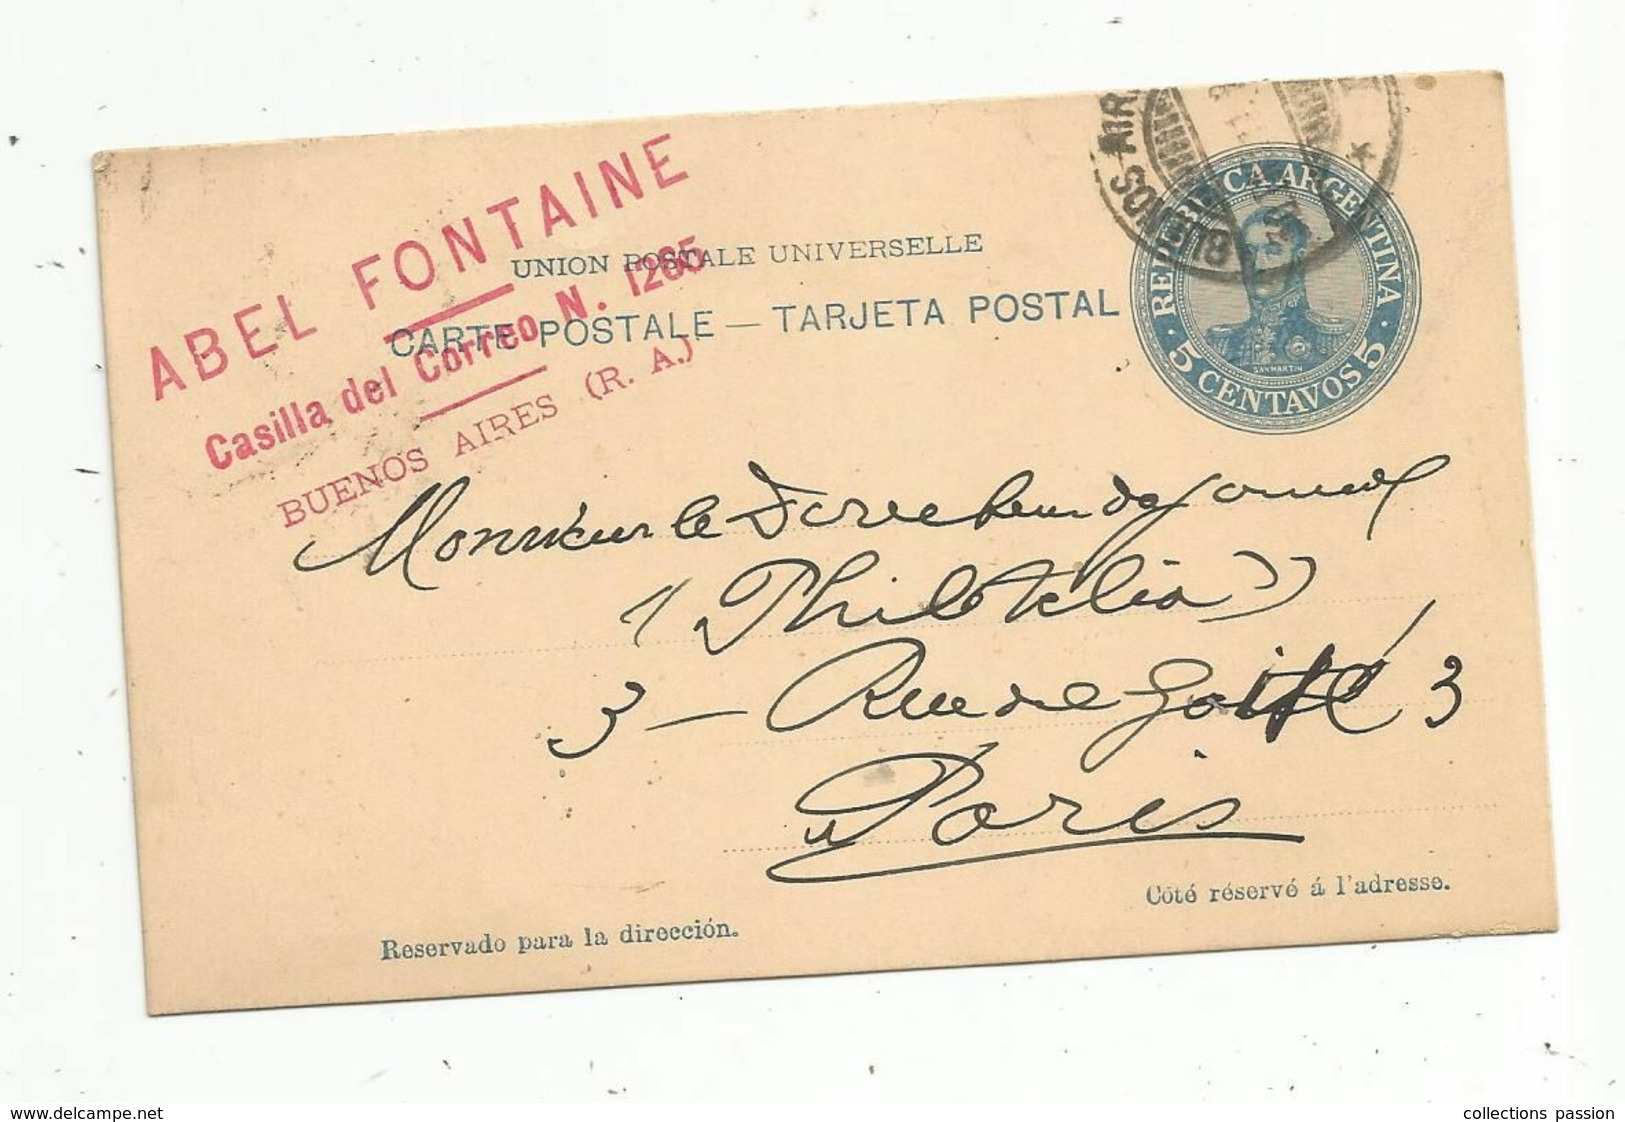 ABEL FONTAINE
Casilla del Correo N. 1265
BUENOS AIRES (R. A.)
UNION POSTALE UNIVERSELLE
CARTE POSTALE — TARJETA POSTAL
REPUBLICA ARGENTINA
SAN MARTIN
5 CENTAVOS 5
BUENOS AIR
Monsieur le Directeur du Journal
"Philotelia"
3 — Rue de Goité 3
Paris
Côté réservé á l'adresse.
Reservado para la dirección.
www.delcampe.net
collections passion